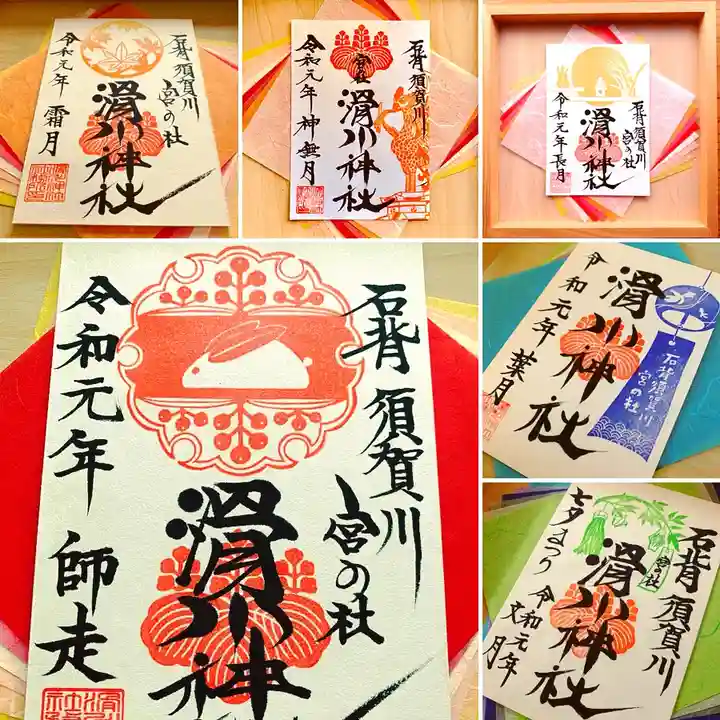 石背 須賀川
宮の社
滑川神社
令和元年 霜月
石背 須賀川
宮の社
滑川神社
令和元年 神無月
石背 須賀川
宮の社
滑川神社
令和元年 長月
石背 須賀川
宮の社
滑川神社
令和元年 師走
石背 須賀川
宮の社
滑川神社
令和元年 葉月
石背 須賀川
宮の社
滑川神社
七夕まつり
令和元年
文月